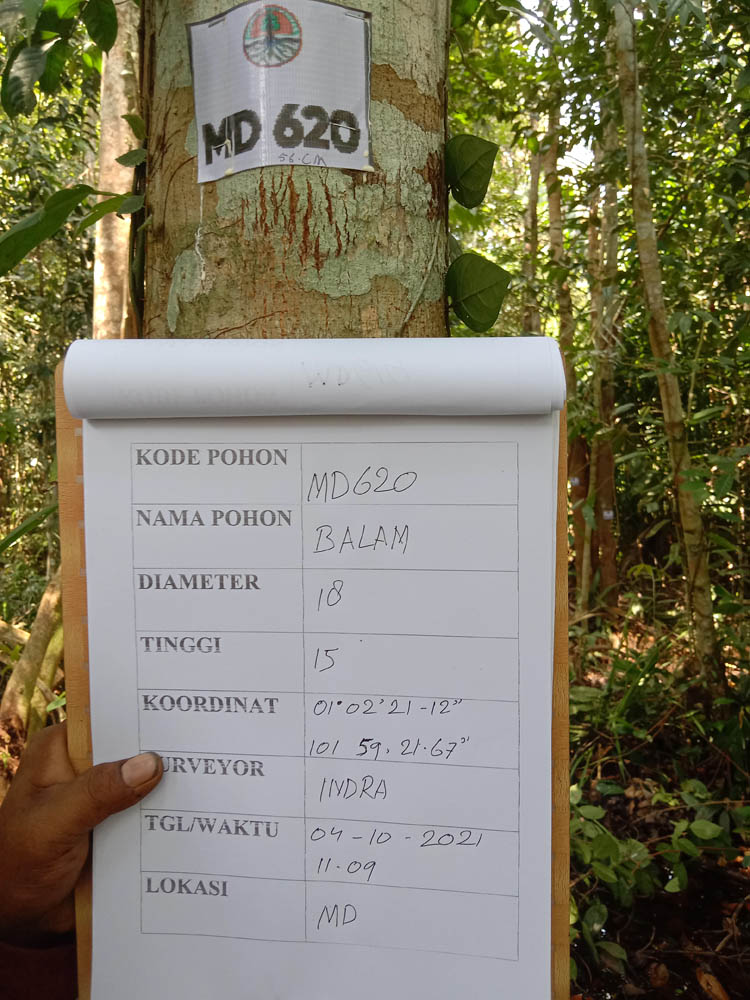 MD 620
56.CM
KODE POHON
MD620
NAMA POHON
BALAM
DIAMETER
18
TINGGI
15
KOORDINAT
01°02'21-12"
101 59, 21.67"
URVEYOR
INDRA
TGL/WAKTU
04-10-2021
11.09
LOKASI
MD